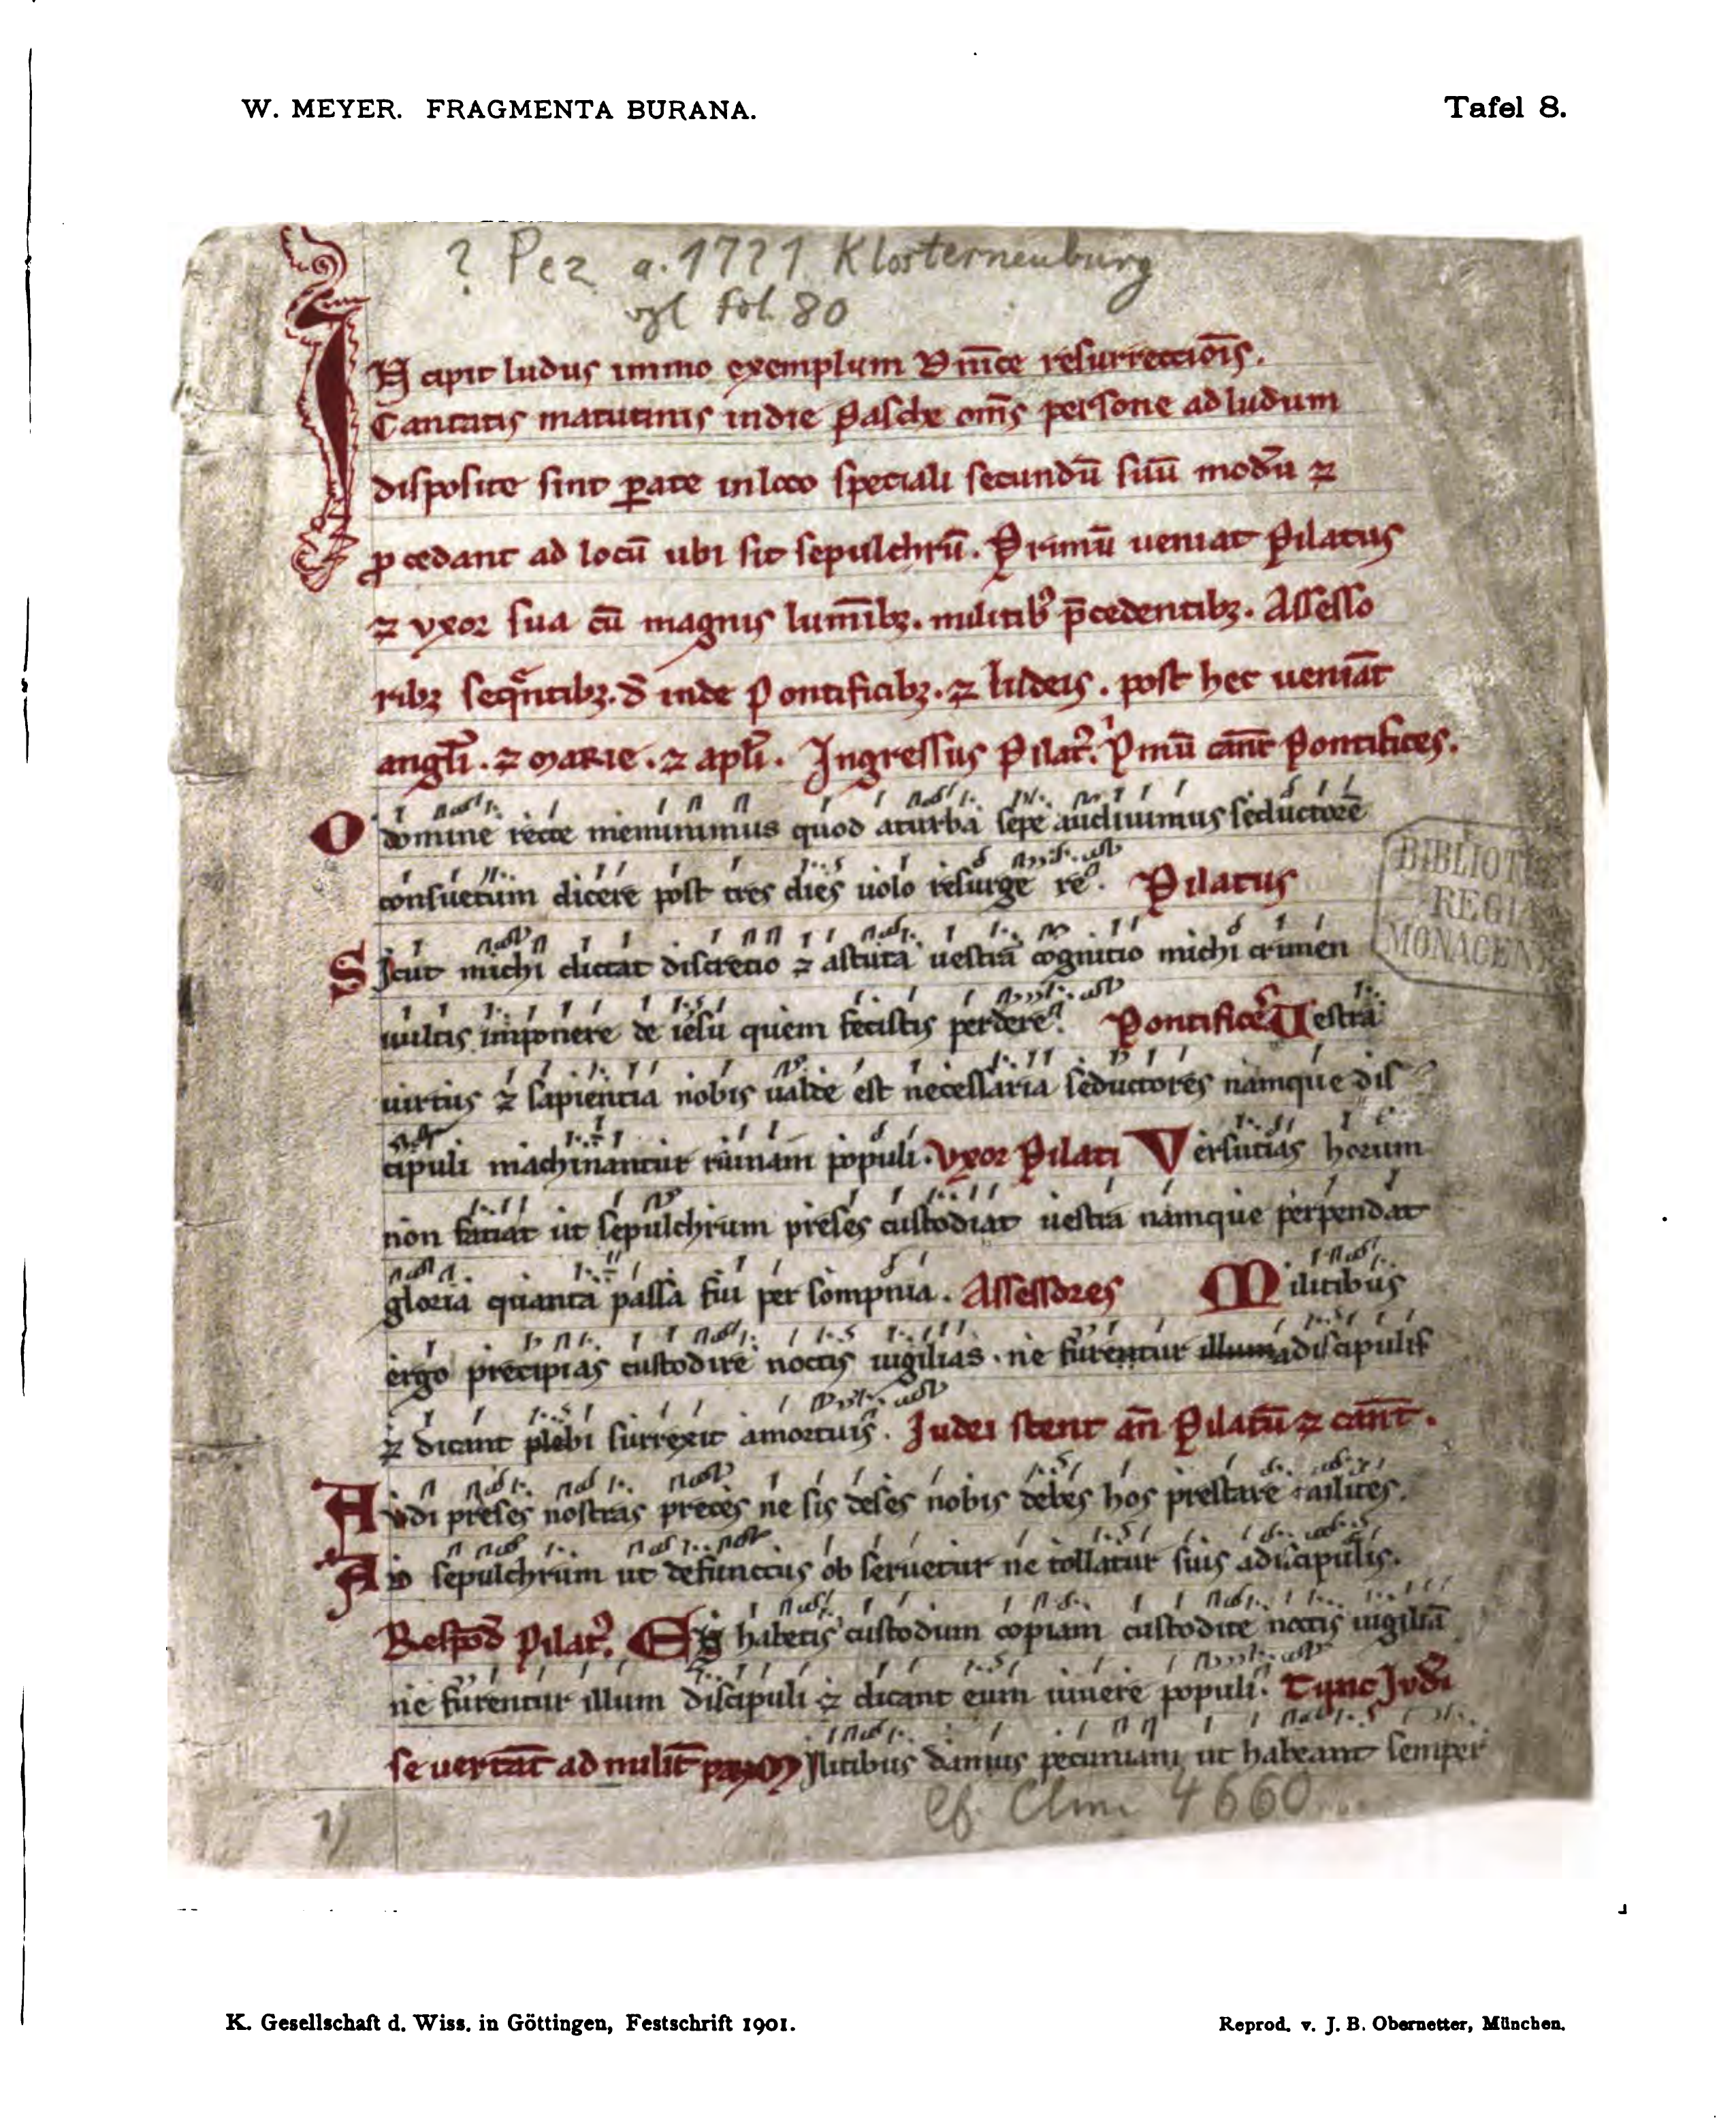 W. MEYER. FRAGMENTA BURANA.
Tafel 8.
? Pez a. 1721 Klosterneuburg
vgl fol. 80
INcipit ludus immo exemplum Dn̄ice resurrectiōis.
Cantatis matutinis indie Pasche om̄s persone ad ludum
disposite sint ꝑate inloco speciali secundū suū modū ⁊
ꝓcedant ad locū ubi sit sepulchrū. Primū ueniat Pilatus
⁊ vxor sua cū magnis lumībꝫ. militibꝰ p̄cedentibꝫ. Assesso
ribꝫ seqūntibꝫ. d̄ inde Pontificibꝫ. ⁊ Iudeis. post hec ueniāt
angl̄i. ⁊ marie. ⁊ apl̄i. Ingressus Pilatꝰ. Pͥmū cān̄t Pontifices.
O domine recte meminimus quod aturba sepe audiuimus seductorē
consuetum dicere post tres dies uolo resurge re. Pilatus
Sicut michi dictat discretio ⁊ astuta uestrā cognitio michi crimen
uultis imponere de iesu quem fecistis perdere. Pontifices Uestra
uirtus ⁊ sapientia nobis ualde est necessaria seductores namque dis
cipuli machinantur ruinam populi. Vxor Pilati Versutias horum
non faciat ut sepulchrum preses custodiat uestra namque perpendat
gloria quanta passa fui per sompnia. Assessores Militibus
ergo precipias custodire noctis uigilias. ne furentur illum adiscipulis
⁊ dicant plebi surrexit amortuis. Iudei stent an̄ Pilatū ⁊ cān̄t.
Audi preses nostras preces ne sis deses nobis debes hos prestare milites.
Ad sepulchrum ut defunctus obseruetur ne tollatur suis adiscipulis.
Respōd Pilatꝰ. habetis custodum copiam custodite noctis uigiliā
ne furentur illum discipuli ⁊ dicant eum uiuere populi. Tunc Jvdei
se uertāt ad milit̄ Militibus damus pecuniam ut habeant semper
cf. Clm 4660
BIBLIOT
REGIA
MONACEN
K. Gesellschaft d. Wiss. in Göttingen, Festschrift 1901.
Reprod. v. J. B. Obernetter, München.